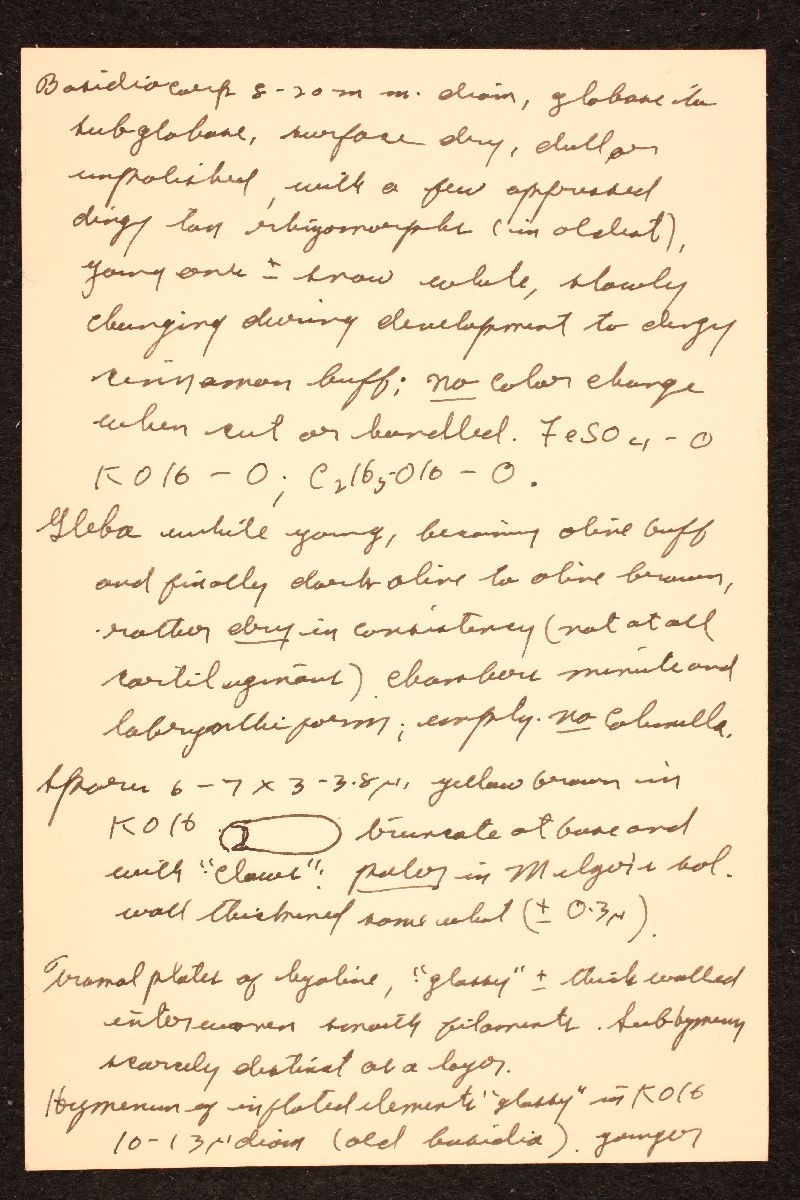 Basidiocarp 8-20 m m. diam, globose to
subglobose, surface dry, dull or
unpolished, with a few appressed
dingy tan rhizomorphs (in oldest),
young one ± snow white, slowly
changing during development to dingy
cinnamon buff; no color change
when cut or handled. FeSO4 - O
KOH - O; C2H5OH - O.
Gleba white young, becoming olive buff
and finally dark olive to olive brown,
rather dry in consistency (not at all
cartilaginous) chambers minute and
labyrinthiform; empty. no Columella.
Spores 6 - 7 x 3 - 3.8 µ, yellow brown in
KOH truncate at base and
with "claws": paler in Melzer's sol.
wall thickened somewhat (± 0.3µ).
Tramal plates of hyaline, "glassy" ± thick walled
interwoven smooth filaments. Subhymeny
scarcely distinct as a layer.
Hymenium of inflated elements "glassy" in KOH
10-13 µ diam (old basidia). younger